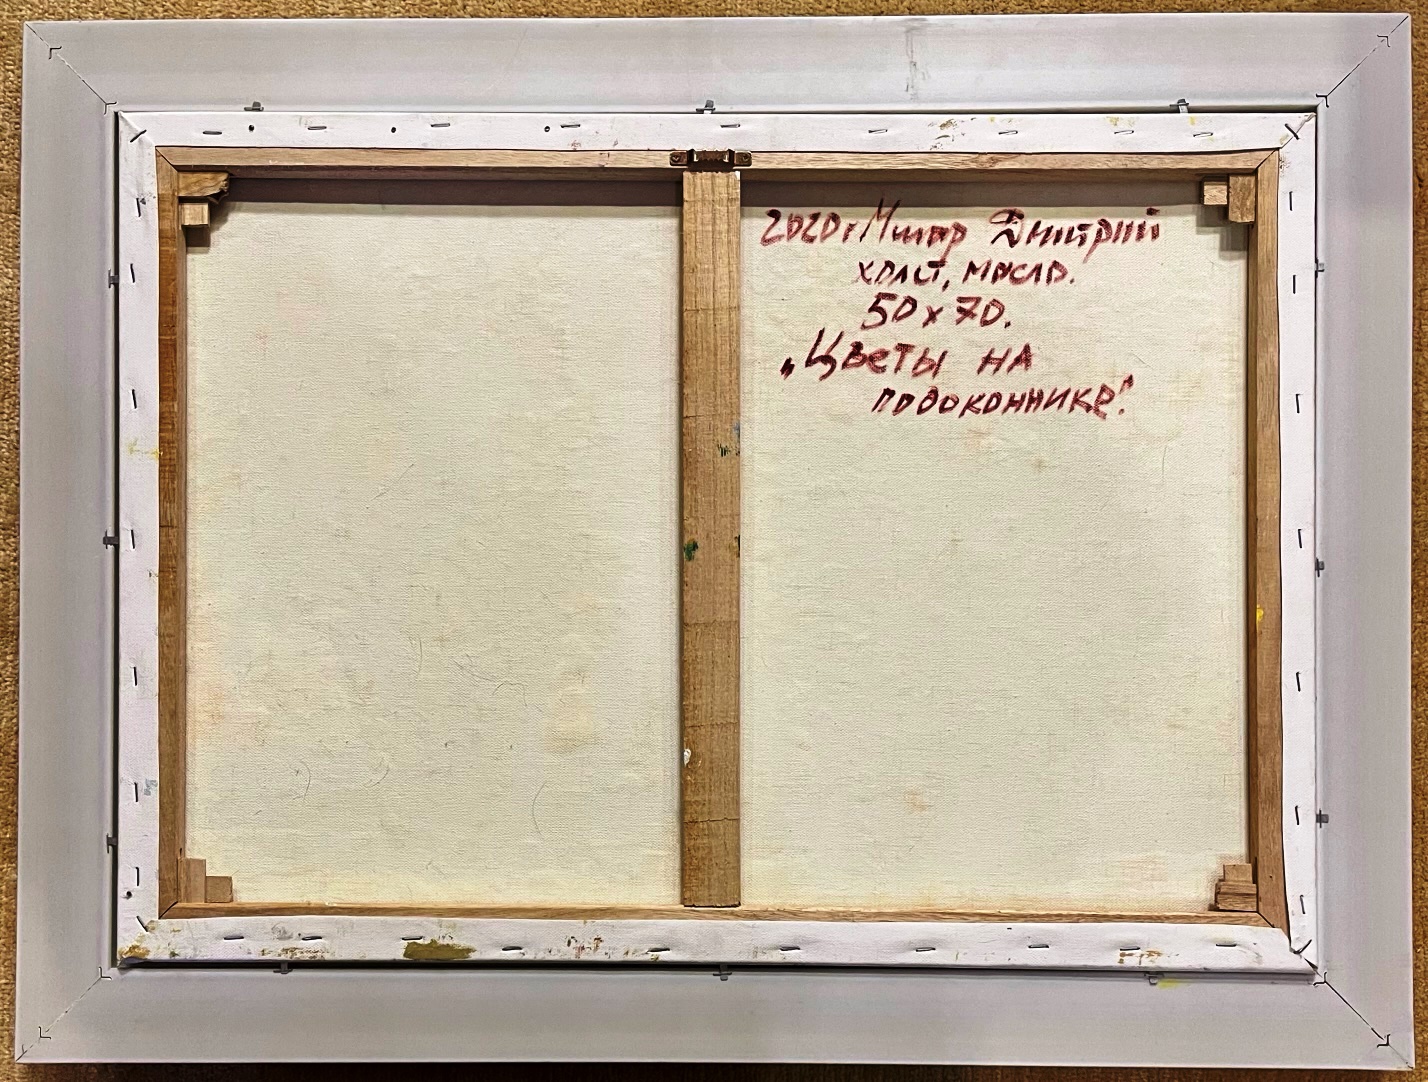 2020г Мишар Дмитрий
холст, масло.
50 x 70.
„Цветы на
подоконнике".